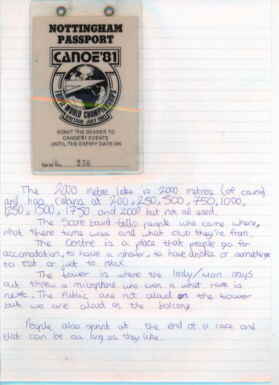 NOTTINGHAM
PASSPORT
CANOE'81
WORLD CHAMPIONSHIPS
ADMIT THE BEARER TO
CANOE'81 EVENTS
Serial No.
The 2000 metre lake is 2000 metres (of course)
and has at 200, 250, 500, 750, 1000,
1250, 1500, 1750 and 2000 but not all used.
The Score board tells people who came where,
what there time was and what club they're from.
The Centre is a place that people go for
accomadation, to have a shower, to have drinks or something
to eat or just to relax.
The tower is where the lady/man says
out threw a microphone who won or what race is
next. The Public are not alaud on the tower
but we are alaud on the balcony.
People also sprint at the end of a race and
that can be as long as they like.